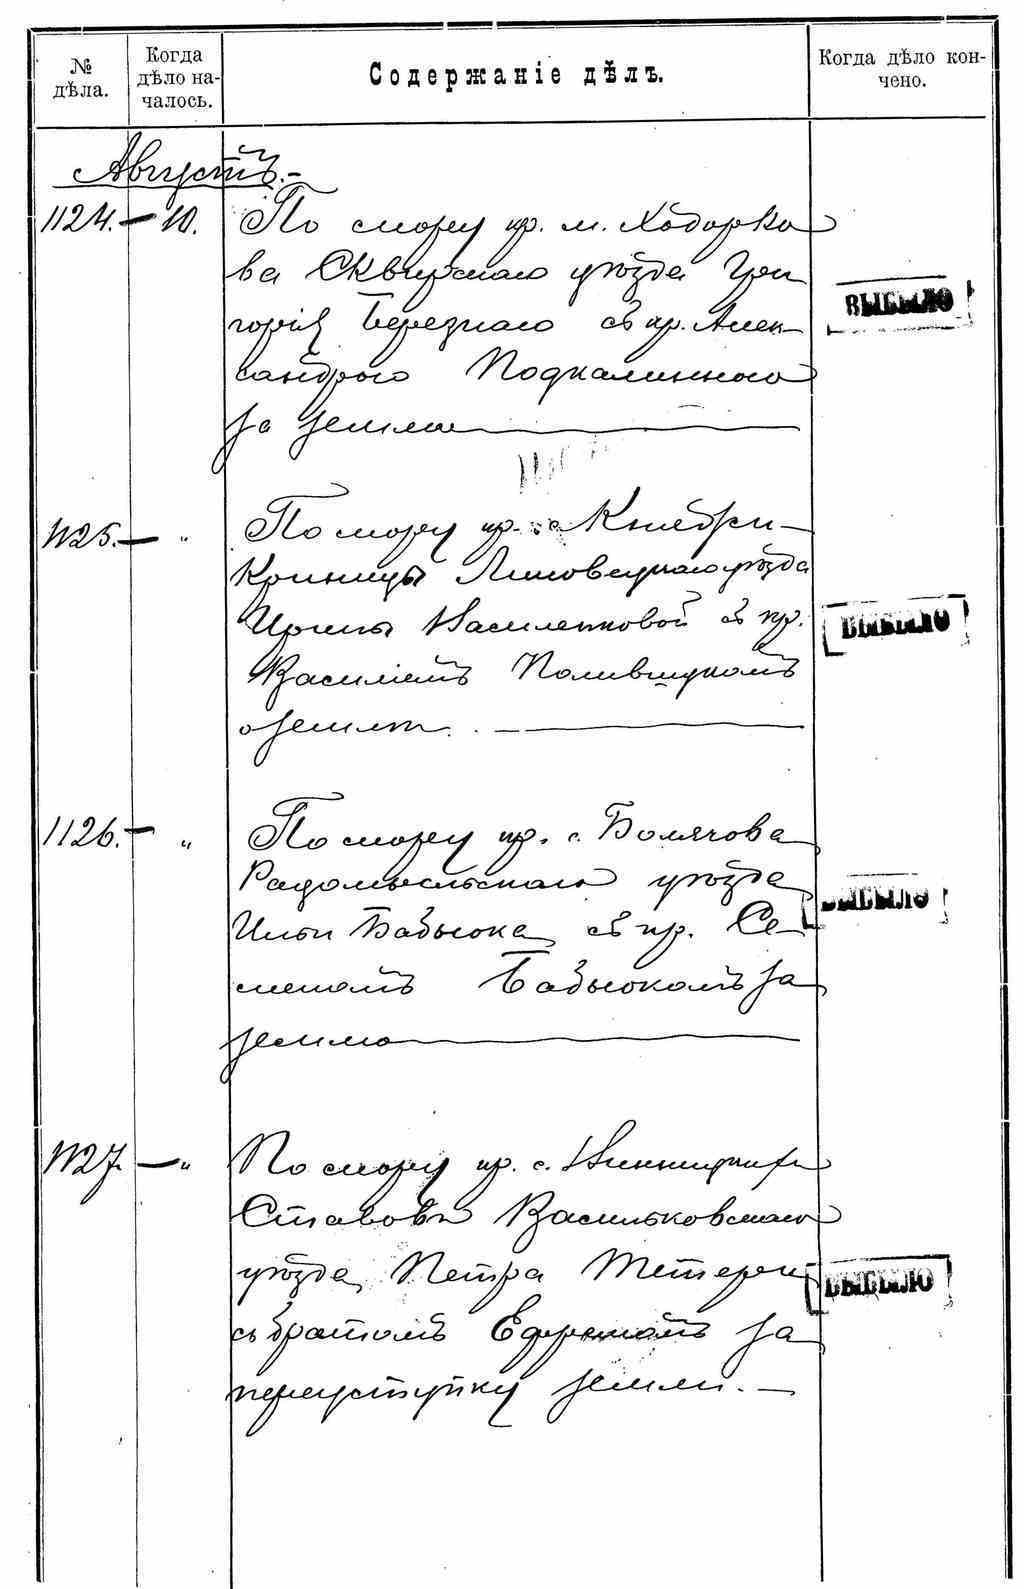 № дѣла.
Когда дѣло на-
чалось.
Содержаніе дѣлъ.
Когда дѣло кон-
чено.
Августъ.–
1124. – 10. По спору кр. м. Ходорко
ва Сквирскаго уѣзда Гри
горія Березнаго съ кр. Алек-
сандрою
за землю
ВЫБЫЛО
1125. – " По спору кр. с. Кнебри-
Криницы Липовецкаго уѣзда
Ирины Василенковой съ кр.
Василіемъ Поливщукомъ
о землѣ.
ВЫБЫЛО
1126. – " По спору кр. с. Болячова
Радомысльскаго уѣзда
Ильи Бабыюка съ кр. Се-
меномъ Бабыюкомъ за
землю
ВЫБЫЛО
1127. – " По спору кр. с. Винницкихъ
Ставовъ Васильковскаго
уѣзда Петра Тетери
съ братомъ Ефремомъ за
переуступку земли. –
ВЫБЫЛО